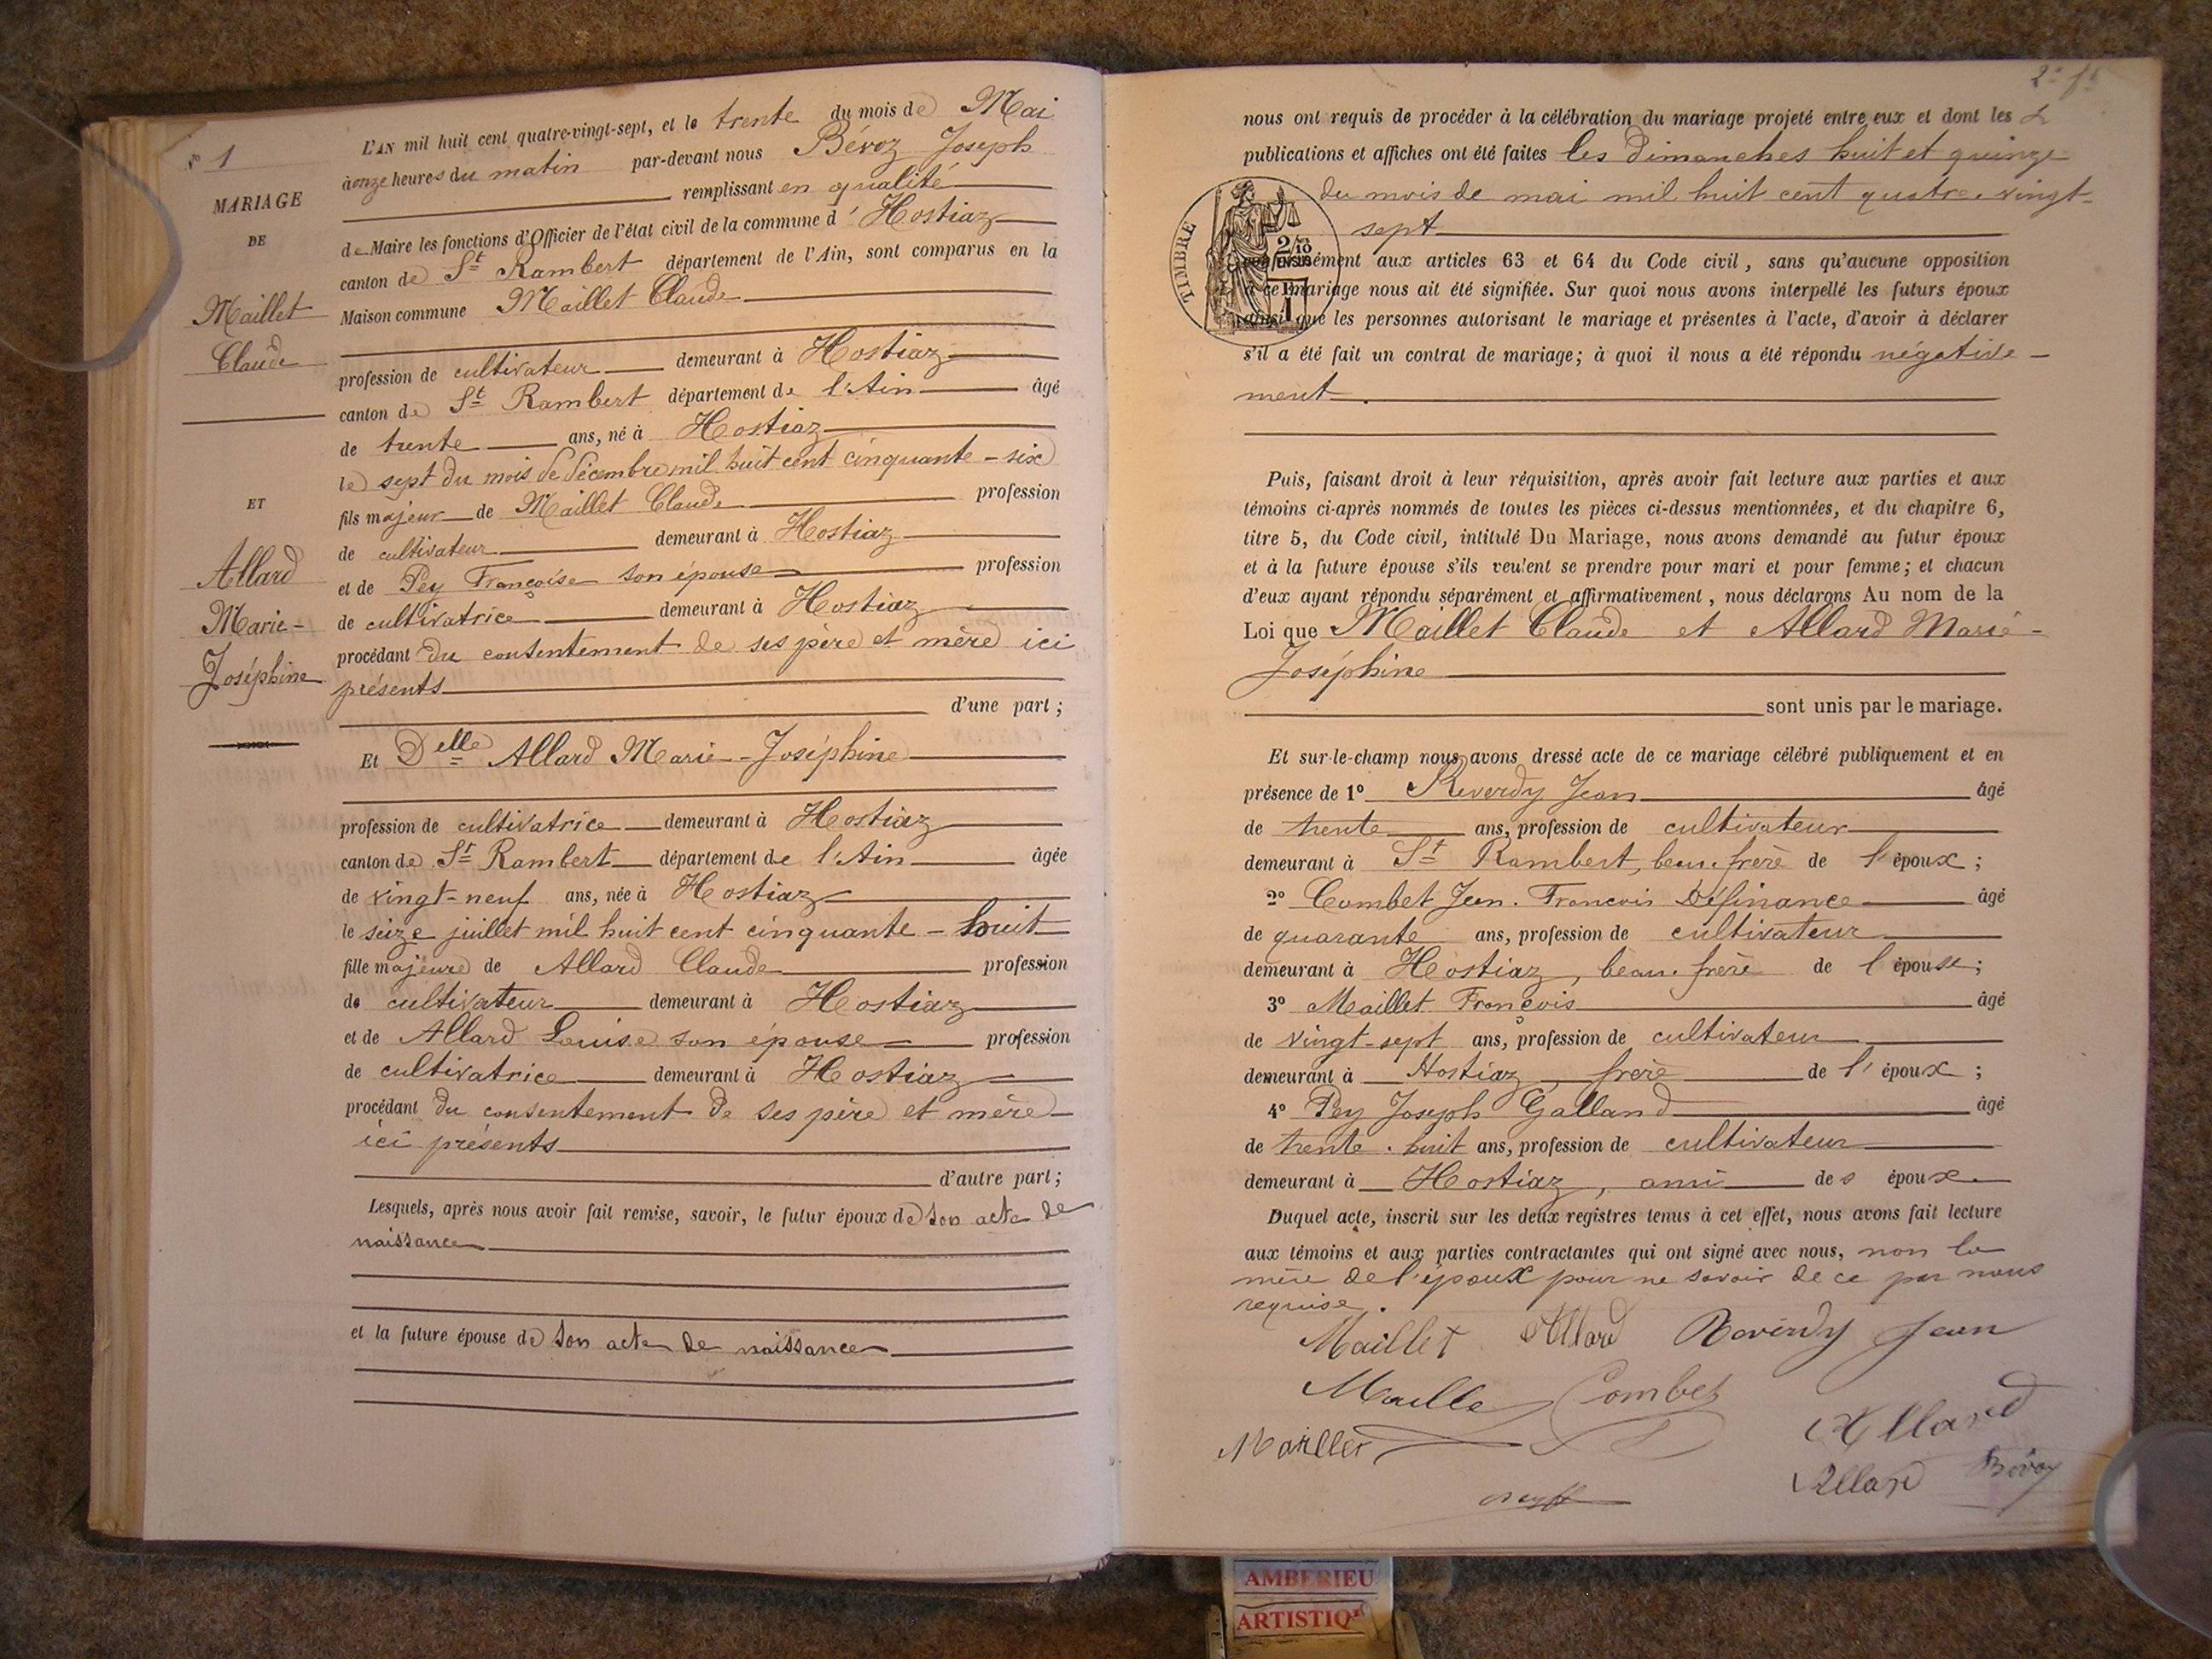 N° 1
MARIAGE
DE
Maillet
Claude
ET
Allard
Marie-
Joséphine
L'AN mil huit cent quatre-vingt-sept, et le trente du mois de Mai
à onze heures du matin par-devant nous Béroz Joseph
remplissant en qualité
de Maire les fonctions d'Officier de l'état civil de la commune d'Hostiaz
canton de St Rambert département de l'Ain, sont comparus en la
Maison commune Maillet Claude
profession de cultivateur demeurant à Hostiaz
canton de St Rambert département de l'Ain âgé
de trente ans, né à Hostiaz
le sept du mois de décembre mil huit cent cinquante-six
fils majeur de Maillet Claude profession
de cultivateur demeurant à Hostiaz
et de Pey Françoise son épouse profession
de cultivatrice demeurant à Hostiaz
procédant du consentement de ses père et mère ici
présents
d'une part;
Et Delle Allard Marie-Joséphine
profession de cultivatrice demeurant à Hostiaz
canton de St Rambert département de l'Ain âgée
de vingt-neuf ans, née à Hostiaz
le seize juillet mil huit cent cinquante-huit
fille majeure de Allard Claude profession
de cultivateur demeurant à Hostiaz
et de Allard Louise son épouse profession
de cultivatrice demeurant à Hostiaz
procédant du consentement de ses père et mère
ici présents
d'autre part;
Lesquels, après nous avoir fait remise, savoir, le futur époux de son acte de
naissance
et la future épouse de son acte de naissance
nous ont requis de procéder à la célébration du mariage projeté entre eux et dont les 2
publications et affiches ont été faites les dimanches huit et quinze
du mois de mai mil huit cent quatre-vingt-
sept
TIMBRE
conformément aux articles 63 et 64 du Code civil, sans qu'aucune opposition
à ce mariage nous ait été signifiée. Sur quoi nous avons interpellé les futurs époux
ainsi que les personnes autorisant le mariage et présentes à l'acte, d'avoir à déclarer
s'il a été fait un contrat de mariage; à quoi il nous a été répondu négative-
ment.
Puis, faisant droit à leur réquisition, après avoir fait lecture aux parties et aux
témoins ci-après nommés de toutes les pièces ci-dessus mentionnées, et du chapitre 6,
titre 5, du Code civil, intitulé Du Mariage, nous avons demandé au futur époux
et à la future épouse s'ils veulent se prendre pour mari et pour femme; et chacun
d'eux ayant répondu séparément et affirmativement, nous déclarons Au nom de la
Loi que Maillet Claude et Allard Marie-
Joséphine
sont unis par le mariage.
Et sur-le-champ nous avons dressé acte de ce mariage célébré publiquement et en
présence de 1° Reverdy Jean âgé
de trente ans, profession de cultivateur
demeurant à St Rambert, beau-frère de l'époux;
2° Combet Jean-François Définance âgé
de quarante ans, profession de cultivateur
demeurant à Hostiaz, beau-frère de l'épouse;
3° Maillet François âgé
de vingt-sept ans, profession de cultivateur
demeurant à Hostiaz, frère de l'époux;
4° Pey Joseph Galland âgé
de trente-huit ans, profession de cultivateur
demeurant à Hostiaz, ami des époux.
Duquel acte, inscrit sur les deux registres tenus à cet effet, nous avons fait lecture
aux témoins et aux parties contractantes qui ont signé avec nous, non la
mère de l'époux pour ne savoir de ce par nous
requise.
Maillet Allard Reverdy Jean
Maillet Combet
Allard
Maillet
Allard Béroz
AMBERIEU
ARTISTIQ